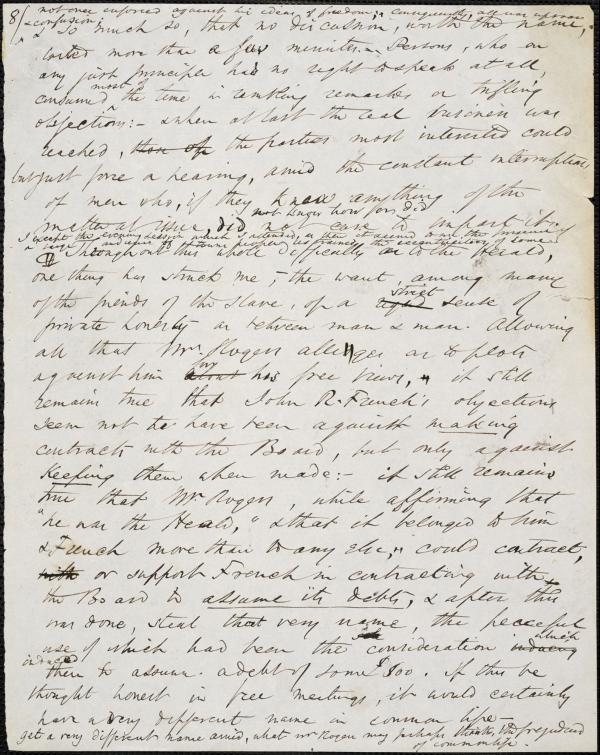 8/ not once enforced against his ideas of freedom; & consequently, all was uproar
& confusion;
& so much so, that no discussion, worth the name,
lasted more than a few minutes. Persons, who on
any just principles had no right to speak at all,
consumed most of the time in remarks or trifling
objections:- & when at last the real business was
reached, than of the parties most interested could
but just force a hearing, amid the constant interruptions
of men who, if they knew anything of the
matter at issue, did not know how, or did not care to impart it.
I except the evening session which I attended, as there it seemed to me the
large audience
¶ Throughout this whole difficulty as to the Herald,
one thing has struck me; the want, among many
of the friends of the slave, of a right strict sense of
private honesty as between man & man. Allowing
all that Mr. Rogers alleges as to plots
against him about for his free views, it still
remains true that John R. French's objections
seem not to have been against making
contracts with the Board, but only against
keeping them when made:- it still remains
true that Mr. Rogers, while affirming that
"he was the Herald," & that it belonged to him
& French more than to any else, could contract,
with or support French in contracting with
the Board to assume its debts, & after this
was done, steal that very name the peaceful
use of which had been the consideration inducing which
induced them to assume a debt of some $ 500. If this be
thought honest in free meetings, it would certainly
have a very different name in common life -
get a very different name amid, what Mr Rogers may perhaps think, the prejudices
of common life.